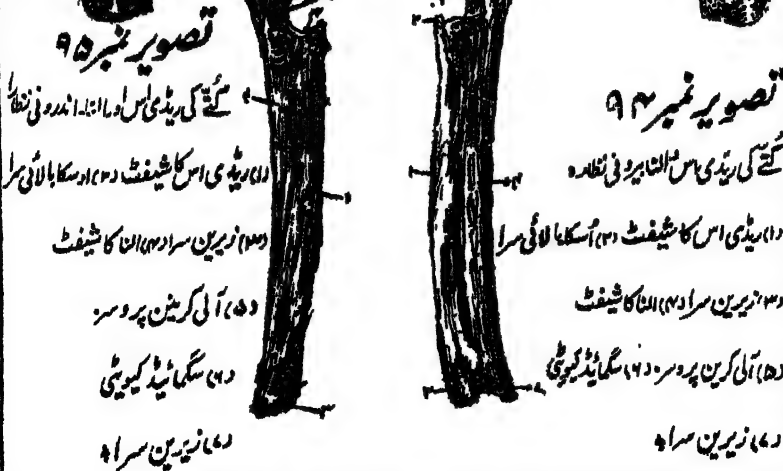 تصویر نمبر ۹۴
کُتّے کی ریڈی اس النا بیرونی نظارہ
(۱) ریڈی اس کا شیفٹ (۲) اُسکا بالائی سرا
(۳) زیرین سرا (۴) النا کا شیفٹ
(۵) آلی کرین پروسز (۶) سگمائیڈ کیویٹی
(۷) زیرین سرا ۹
تصویر نمبر ۹۵
کُتّے کی ریڈی اس اور النا۔ اندرونی نظارا
(۱) ریڈی اس کا شیفٹ (۲) اوسکا بالائی سرا
(۳) زیرین سرا (۴) النا کا شیفٹ
(۵) آلی کرینن پروسز
(۶) سگمائیڈ کیویٹی
(۷) زیرین سرا ۹